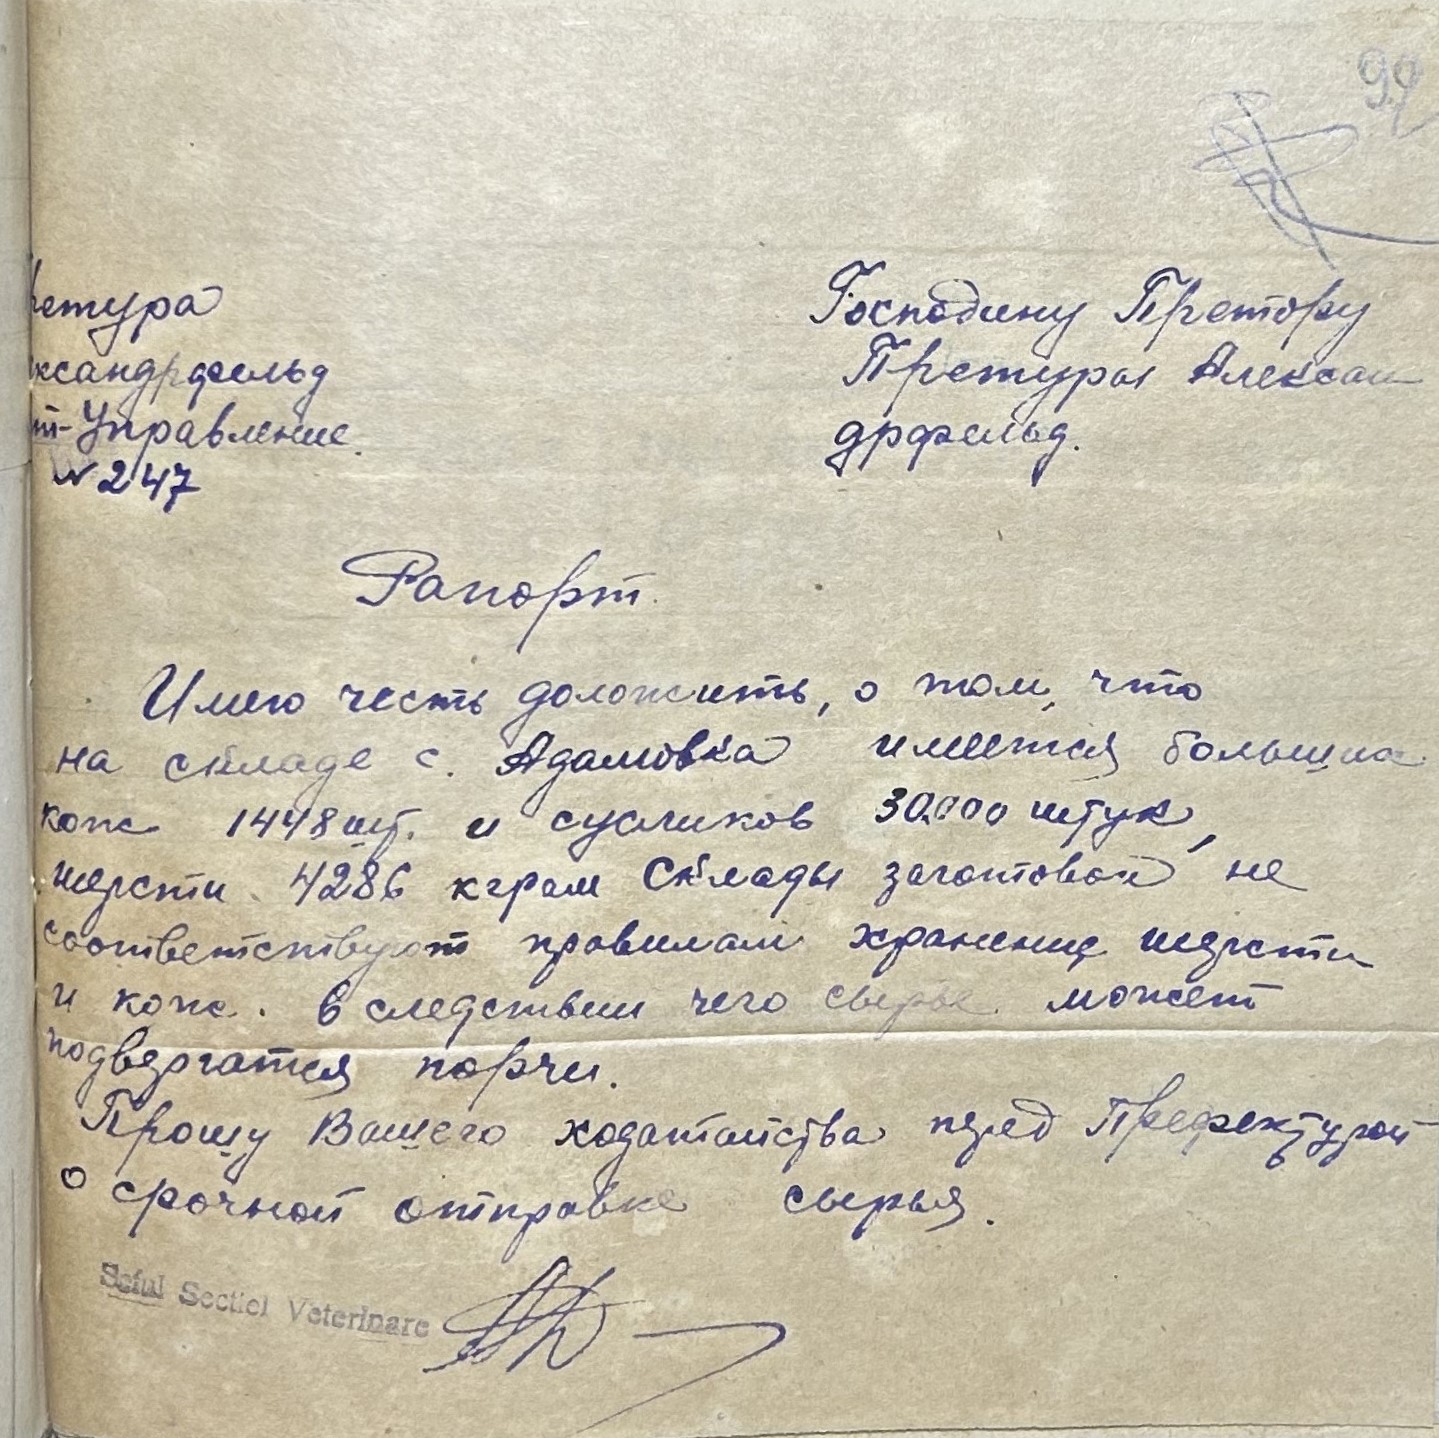 92
ретура
ксандрфельд
т-Управление
N 247
Господину Претору
Претуры Алексан
дрфельд.
Рапорт.
Имею честь доложить, о том, что
на складе с. Адамовка имеется больших
кож 1448 шт. и сусликов 30.000 штук,
шерсти 4286 кграм Склады заготовой не
соответствуют правилам хранение шерсти
и кож. В следствии чего сырье может
подвергатся порчи.
Прошу Вашего ходатайства перед Префектурой
о срочной отправке сырья.
Seful Sectiei Veterinare